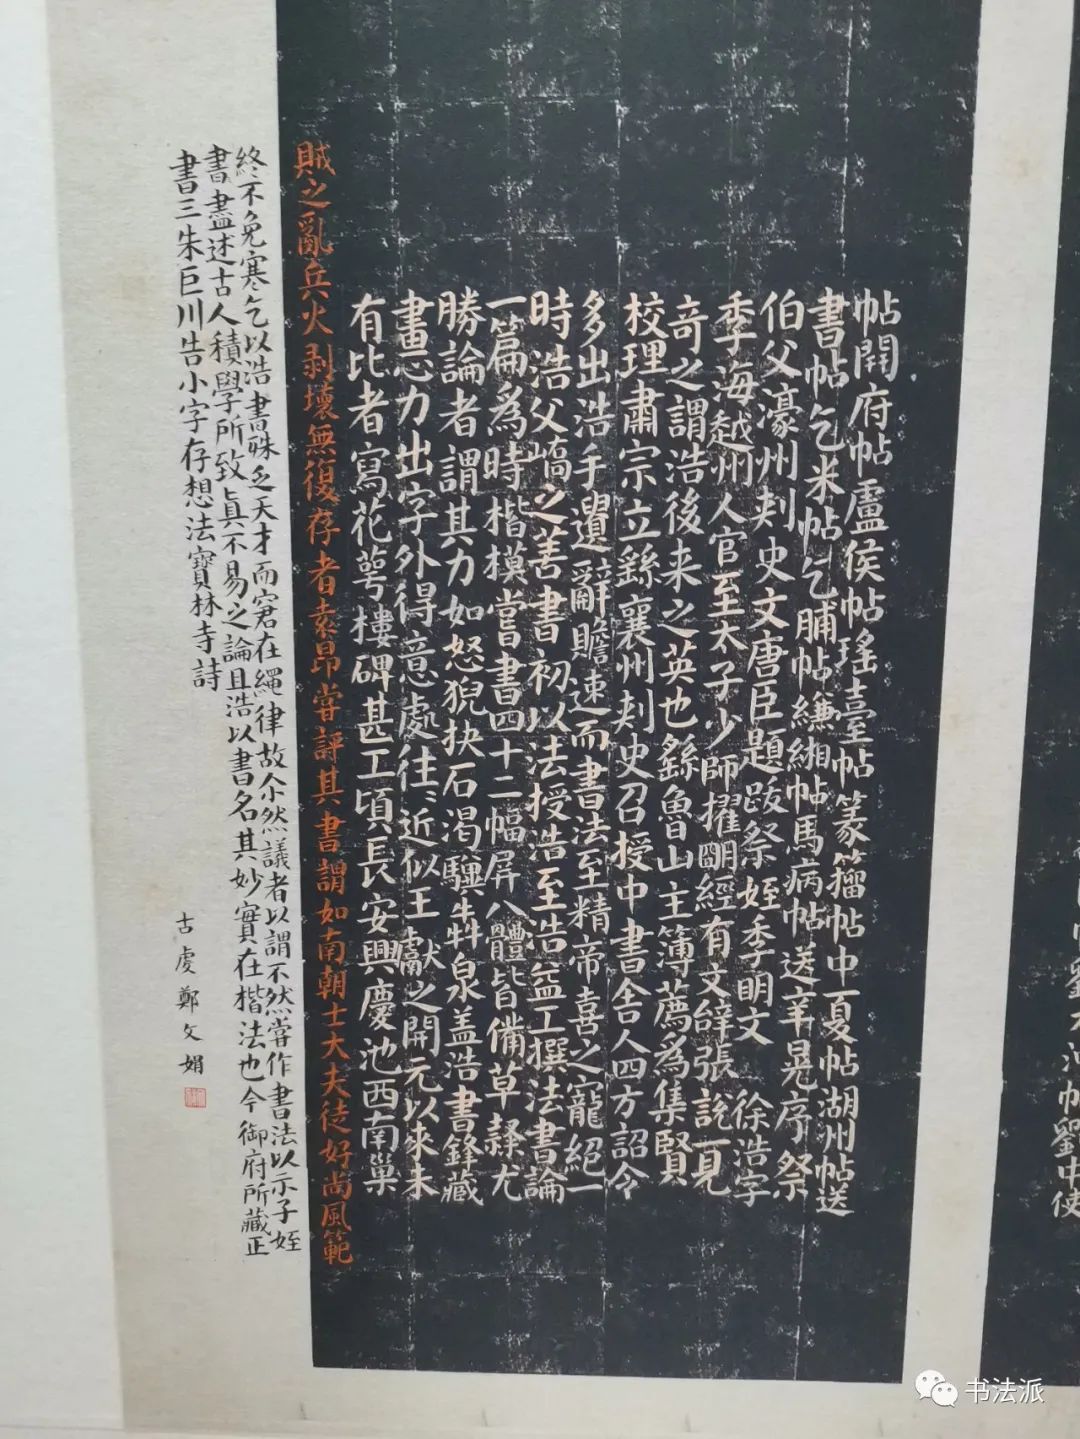 帖開府帖盧侯帖瑤臺帖篆籀帖中夏帖湖州帖送
書帖乞米帖乞脯帖縑緗帖馬病帖送辛晃序祭
伯父濠州刺史文唐臣題跋祭姪季明文 徐浩字
季海越州人官至太子少師擢明經有文辭張說一見
奇之謂浩後来之英也繇魯山主簿薦為集賢
校理肅宗立繇襄州刺史召授中書舍人四方詔令
多出浩手遣辭贍速而書法至精帝喜之寵絕一
時浩父嶠之善書初以法授浩至浩益工撰法書論
一篇為時楷模嘗書四十二幅屏八體皆備草隸尤
勝論者謂其力如怒猊抉石渴驥奔泉盖浩書鋒藏
畫心力出字外得意處往〻近似王獻之開元以來未
有比者寫花萼樓碑甚工頃長安興慶池西南巢
賊之亂兵火剥壞無復存者袁昂嘗評其書謂如南朝士大夫徒好尚風範
終不免寒乞以浩書殊乏天才而窘在繩律故尒然議者以謂不然嘗作書法以示子姪
書盡述古人積學所致真不易之論且浩以書名其妙實在楷法也今御府所藏正
書三朱巨川告小字存想法寶林寺詩
古虔鄭文娟
劉中使
书法派